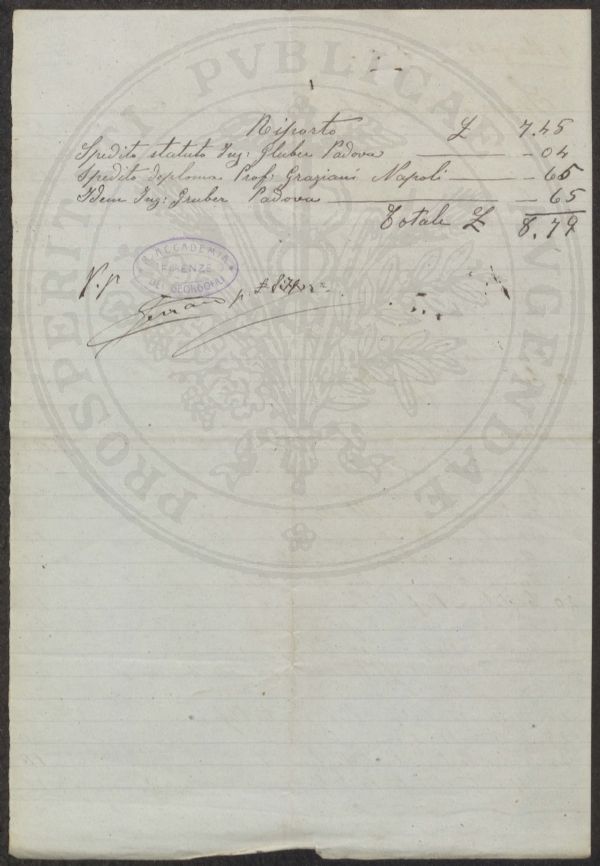 Riporto £ 7.45
Spedito statuto Ing: Gluber Padova — - 04
Spedito deploma Prof: Graziani Napoli — - 65
Idem Ing: Gruber Padova — - 65
Totale £ 8.79
R. ACCADEMIA
FIRENZE
DEI GEORGOFILI
V. p
PROSPERITATI PVBLICAE AVGENDAE